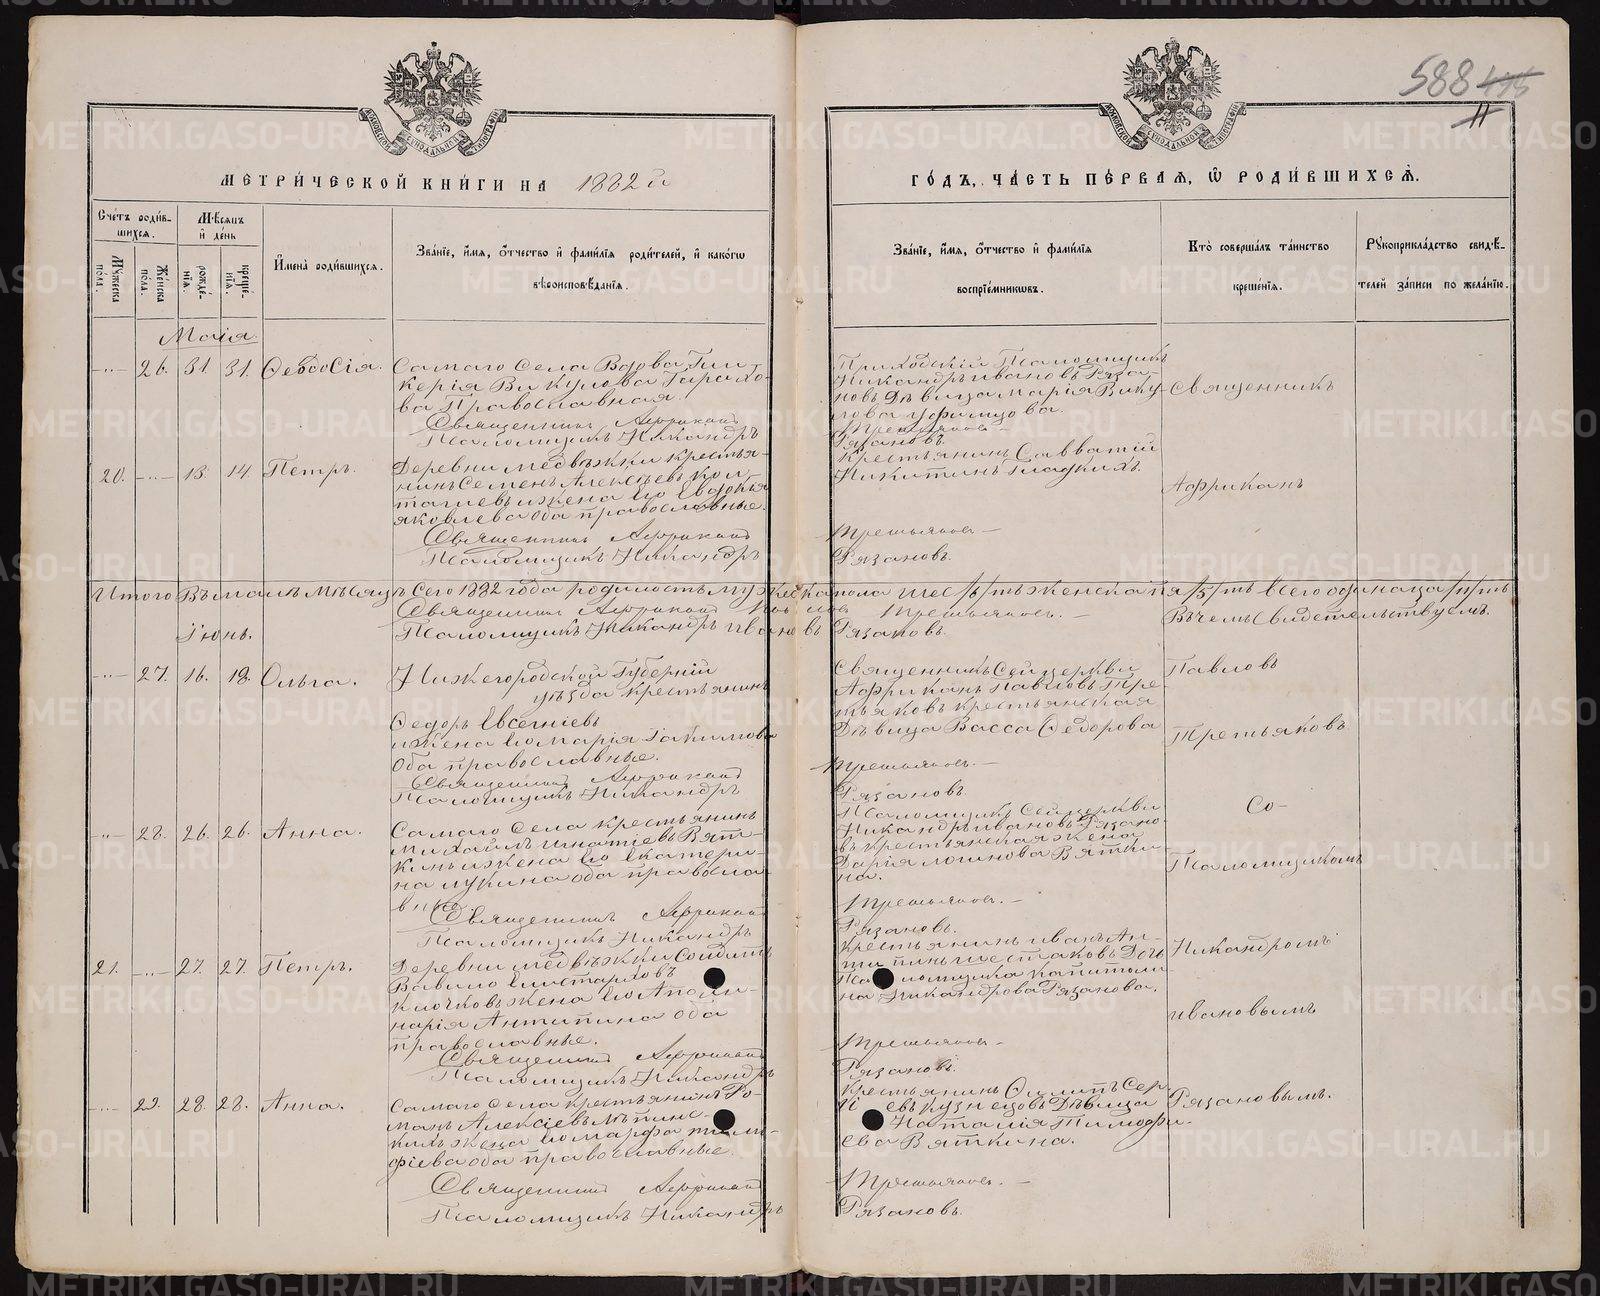 588 475
11
МОСКОВСКОЙ СѴНОДАЛЬНОЙ ТИПОГРАФІИ
МОСКОВСКОЙ СѴНОДАЛЬНОЙ ТИПОГРАФІИ
МЕТРИ́ЧЕСКОЙ КНИ́ГИ НА 1882й
ГО́ДЪ, ЧА́СТЬ ПЕ́РВАЯ, Ѡ РОДИ́ВШИХСѦ.
Сче́тъ роди́в-
шихсѧ.
Мѣ́сѧцъ
и҆ де́нь
Мꙋ́жеска
по́ла.
Же́нска
по́ла.
рожде́-
нїѧ.
креще́-
нїѧ.
И҆мена̀ роди́вшихсѧ.
Зва́нїе, и҆́мѧ, ѻ҆́тчество и҆ фами́лїѧ роди́телей, и҆ како́гѡ
вѣроисповѣ́данїѧ.
Зва́нїе, и҆́мѧ, ѻ҆́тчество и҆ фами́лїѧ
воспрїе́мникѡвъ.
Кто̀ соверша́лъ та́инство
креще́нїѧ.
Рꙋкоприкла́дство свидѣ́-
телей за́писи по жела́нїю.
Маія.
-..- 26. 31. 31. Ѳеодосія.
Самаго Села Вдова Гли-
керія Викулова Тарахо-
ва Православная.
Священникъ Африканъ
Псаломщикъ Никандръ
Приходскій Псаломщикъ
Никандръ Ивановъ Ряза-
новъ Дѣвица Марія Вику-
лова Уфимцова.
Третьяковъ.-
Рязановъ.
Священникъ
20. -..- 13. 14. Петръ.
Деревни Медвѣжки крестья-
нинъ Семенъ Алексѣевъ
и жена его Евдокія
Яковлева оба православные.
Священникъ Африканъ
Псаломщикъ Никандръ
Крестьянинъ Савватій
Никитинъ Гладкихъ.
Третьяковъ.-
Рязановъ.
Африканъ
Итого въ маѣ мѣсяцѣ сего 1882 года родилось мужеска пола шес/6/ть женска пя/5/ть всего одинадца/11/ть
Священникъ Африканъ Павловъ Третьяковъ.-
Псаломщикъ Никандръ Ивановъ Рязановъ.
Въ чемъ свидетельствуемъ.
Іюнь.
-..- 27. 16. 18. Ольга.
Нижегородской Губерніи
уѣзда крестьянинъ
Ѳедоръ Евсегніевъ
и жена его Марія Іакимова
Оба православные.
Священникъ Африканъ
Псаломщикъ Никандръ
Священникъ Сей церкви
Африканъ Павловъ Тре-
тьяковъ крестьянская
Дѣвица Васса Ѳедорова
Третьяковъ.-
Рязановъ.
Павловъ
Третьяковъ
-..- 28. 26. 26. Анна.
Самаго Села крестьянинъ
Михаилъ Игнатіевъ Вят-
кинъ и жена его Екатери-
на Лукина оба правосла-
вные.
Священникъ Африканъ
Псаломщикъ Никандръ
Псаломщикъ Сей церкви
Никандръ Ивановъ Рязано-
въ крестьянская жена
Дарія Логинова Вятки-
на.
Третьяковъ.-
Рязановъ.
Со-
Псаломщикомъ
21. -..- 27. 27. Петръ.
Деревни Медвѣжки Солдатъ
Вавило
Клочковъ жена его Апол-
нарія Антипина оба
православные.
Священникъ Африканъ
Псаломщикъ Никандръ
Крестьянинъ Иванъ Ан-
типинъ Шестаковъ Дочь
Псаломщика Капитоли-
на Никандрова Рязанова.
Третьяковъ.-
Рязановъ.
Никандромъ
Ивановымъ
-..- 29. 28. 28. Анна.
Самаго Села крестьянинъ Ро-
манъ Алексіевъ
жена его Марфа Тимо-
фіева оба православные.
Священникъ Африканъ
Псаломщикъ Никандръ
Крестьянинъ Филипъ Сер-
гіевъ Кузнецовъ Дѣвица
Наталія Тимофи-
ева Вяткина.
Третьяковъ.-
Рязановъ.
Рязановымъ.
METRIKI.GASO-URAL.RU